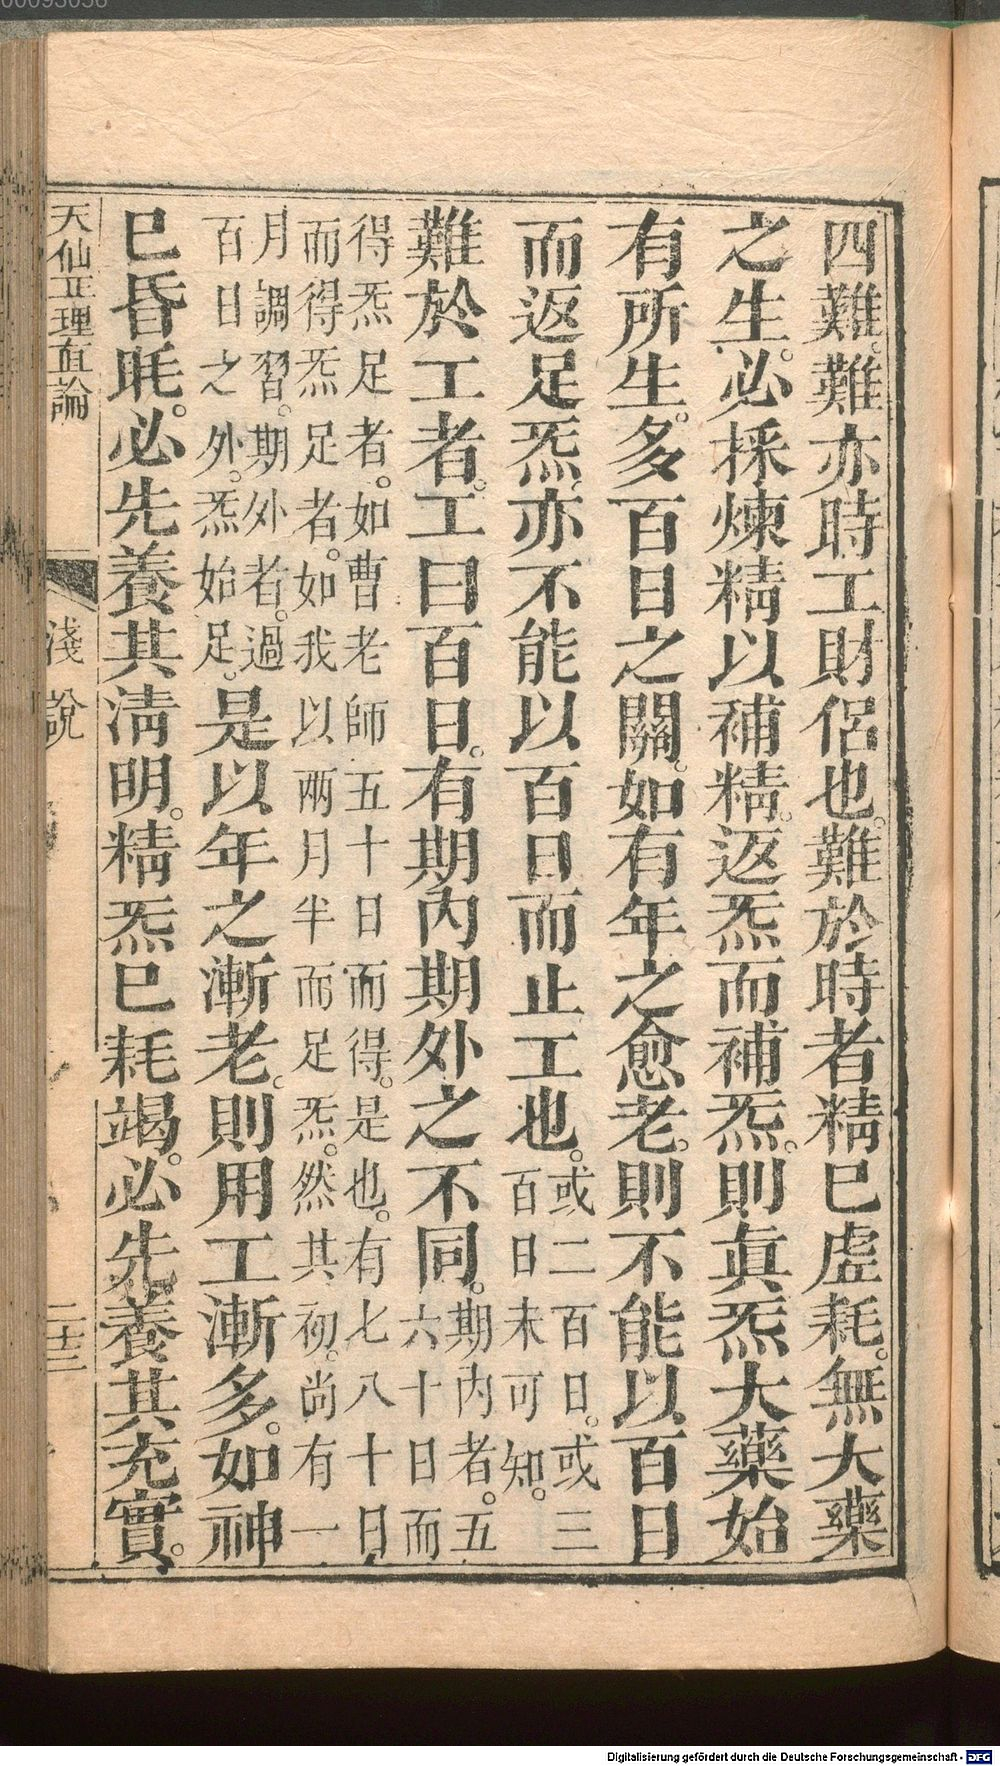 四難。難亦時工財侶也。難於時者精巳虛耗。無大藥
之生。必採煉精以補精。返炁而補炁。則眞炁大藥始
有所生。多百日之關。如有年之愈老。則不能以百日
而返足炁。亦不能以百日而止工也。或二百日。或三
百日未可知。
難於工者。工曰百日。有期內期外之不同。期內者。五
六十日而
得炁足者。如曹老師五十日而得。是也。有七八十日
而得炁足者。如我以兩月半而足炁。然其初。尚有一
月調習。期外者。過
百日之外。炁始足。是以年之漸老。則用工漸多。如神
巳昏眊。必先養其清明。精炁巳耗竭。必先養其充實。
天仙正理直論
淺說
二十三
Digitalisierung gefördert durch die Deutsche Forschungsgemeinschaft - DFG